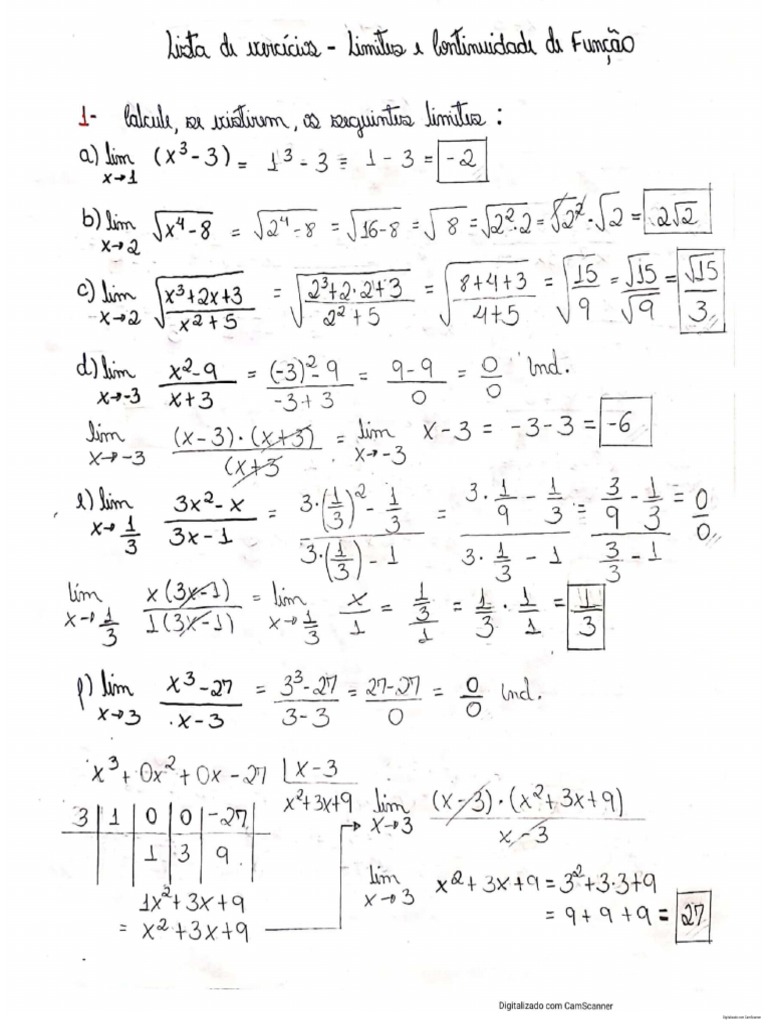 Lista de exercícios - Limites e Continuidade de Função
1- Calcule, se existirem, os seguintes limites:
a) lim x→1 (x³-3) = 1³-3 = 1-3 = -2
b) lim x→2 √(x⁴-8) = √(2⁴-8) = √(16-8) = √8 = √(2²·2) = √2²·√2 = 2√2
c) lim x→2 √((x³+2x+3)/(x²+5)) = √((2³+2·2+3)/(2²+5)) = √((8+4+3)/(4+5)) = √(15/9) = √15/√9 = √15/3
d) lim x→-3 (x²-9)/(x+3) = ((-3)²-9)/(-3+3) = (9-9)/0 = 0/0 Ind.
lim x→-3 (x-3)·(x+3)/(x+3 = lim x→-3 x-3 = -3-3 = -6
e) lim x→1/3 (3x²-x)/(3x-1) = (3·(1/3)²-1/3)/(3·(1/3)-1) = (3·1/9-1/3)/(3·1/3-1) = (3/9-1/3)/(3/3-1) = 0/0
lim x→1/3 x(3x-1)/1(3x-1) = lim x→1/3 x/1 = (1/3)/1 = 1/3·1/1 = 1/3
f) lim x→3 (x³-27)/(x-3) = (3³-27)/(3-3) = (27-27)/0 = 0/0 Ind.
x³+0x²+0x-27 | x-3
x²+3x+9
3 | 1 | 0 | 0 | -27
1 | 3 | 9
1x²+3x+9
= x²+3x+9
lim x→3 (x-3)·(x²+3x+9)/(x-3)
lim x→3 x²+3x+9 = 3²+3·3+9
= 9+9+9 = 27
Digitalizado com CamScanner
Digitalizado com CamScanner